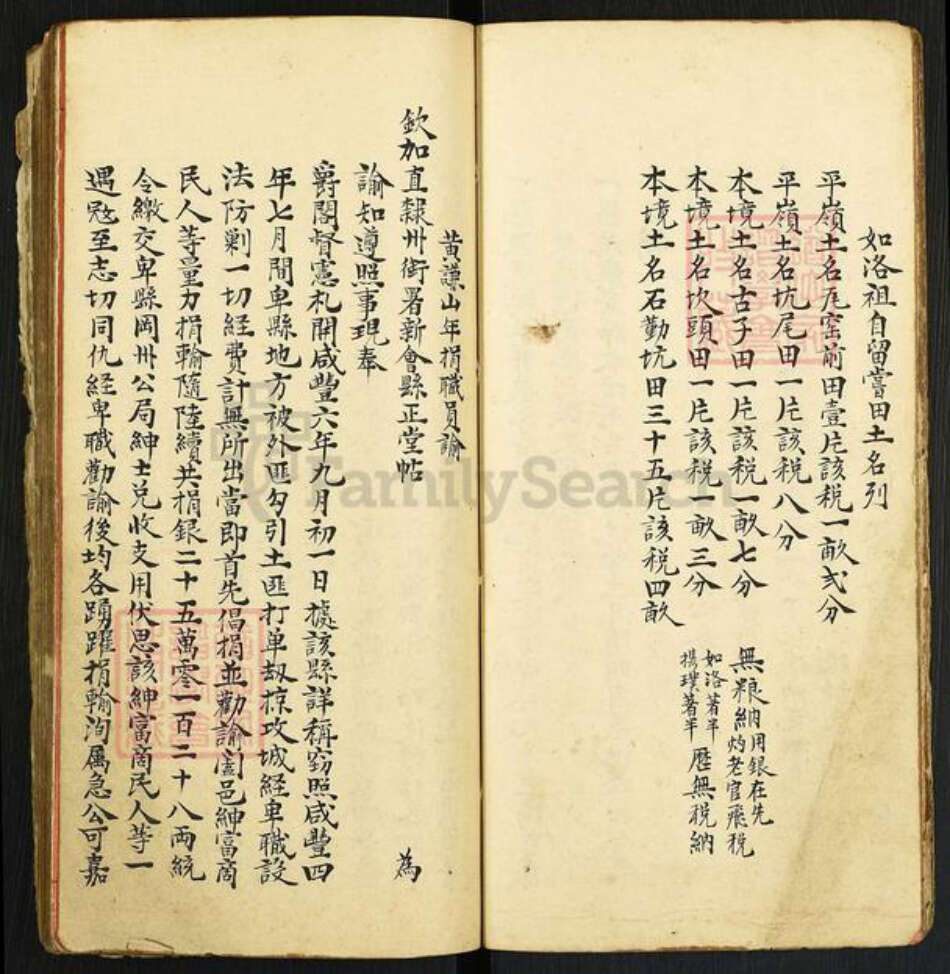 如洛祖自留嘗田土名列
平嶺土名瓦窑前田壹坵該税一畝弍分
平嶺土名坑尾田一坵該税八分
本境土名古子田一坵該税一畝七分
本境土名坎頭田一坵該税一畝三分
本境土名石勤坑田三十五坵該税四畝
無粮納用銀在先
灼老官飛税
如洛著半
揚璞著半
歷無税納
黄謙山年捐職員諭
欽加直隸州銜署新會縣正堂帖 為
諭知遵照事現奉
爵閣督憲札開咸豐六年九月初一日據該縣詳稱窃照咸豐四
年七月間卑縣地方被外匪勾引土匪打单刼掠攻城経卑職設
法防剿一切経費計無所出當即首先倡捐並勸諭闔邑紳富商
民人等量力捐輸隨陸續共捐銀二十五萬零一百二十八両統
令繳交卑縣岡州公局紳士兑收支用伏思該紳富商民人等一
遇冦至志切同仇経卑職勸諭後均各踴躍捐輸洵属急公可嘉
FamilySearch